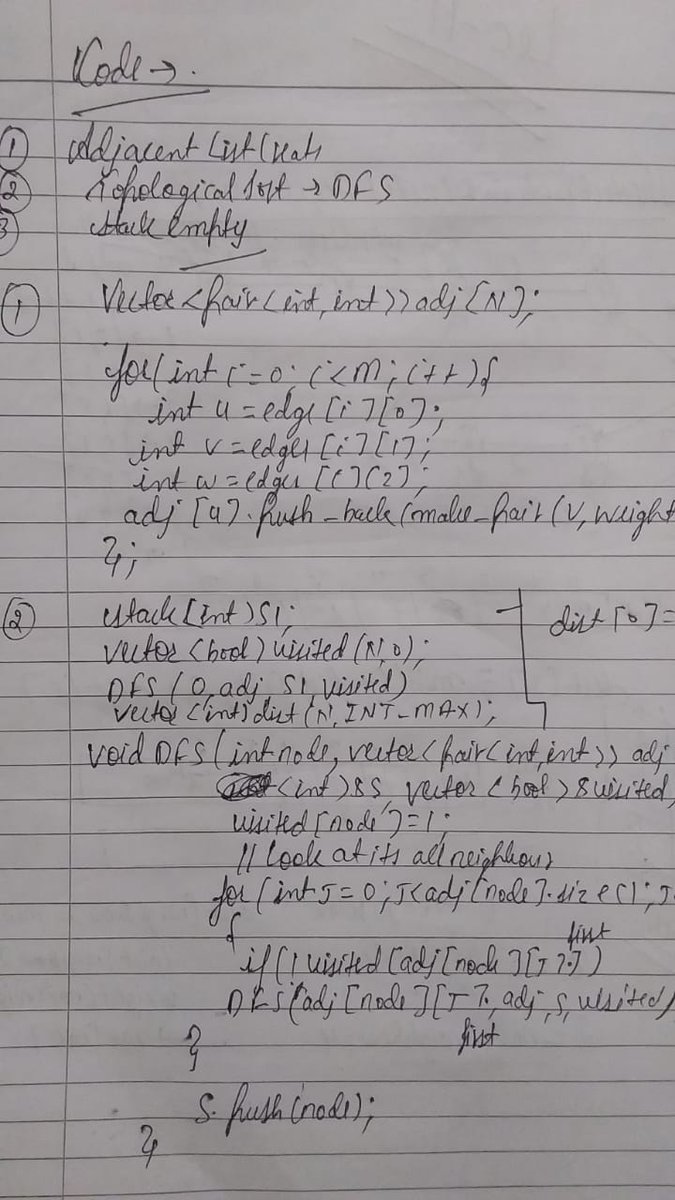 Code →.
① Adjacent List Create
② Topological Sort → DFS
③ stack empty
① Vector<pair<int, int>> adj[N];
for(int i=0; i<m; i++){
int u = edge[i][0];
int v = edges[i][1];
int w = edges[i][2];
adj[u].push_back(make_pair(v, weight
};
② stack[int> S1;
vector<bool> visited(N,0);
dist[0]=
DFS(0, adj, S1, visited)
vector<int> dist(N, INT_MAX);
void DFS(int node, vector<pair<int,int>> adj
<int>&S, vector<bool>&visited,
visited[node]=1;
// Look at its all neighbours
for(int J=0; J<adj[node].size(); J
{
first
if(!visited[adj[node][J].])
DFS(adj[node][J]., adj, s, visited)
first
}
S.push(node);
}